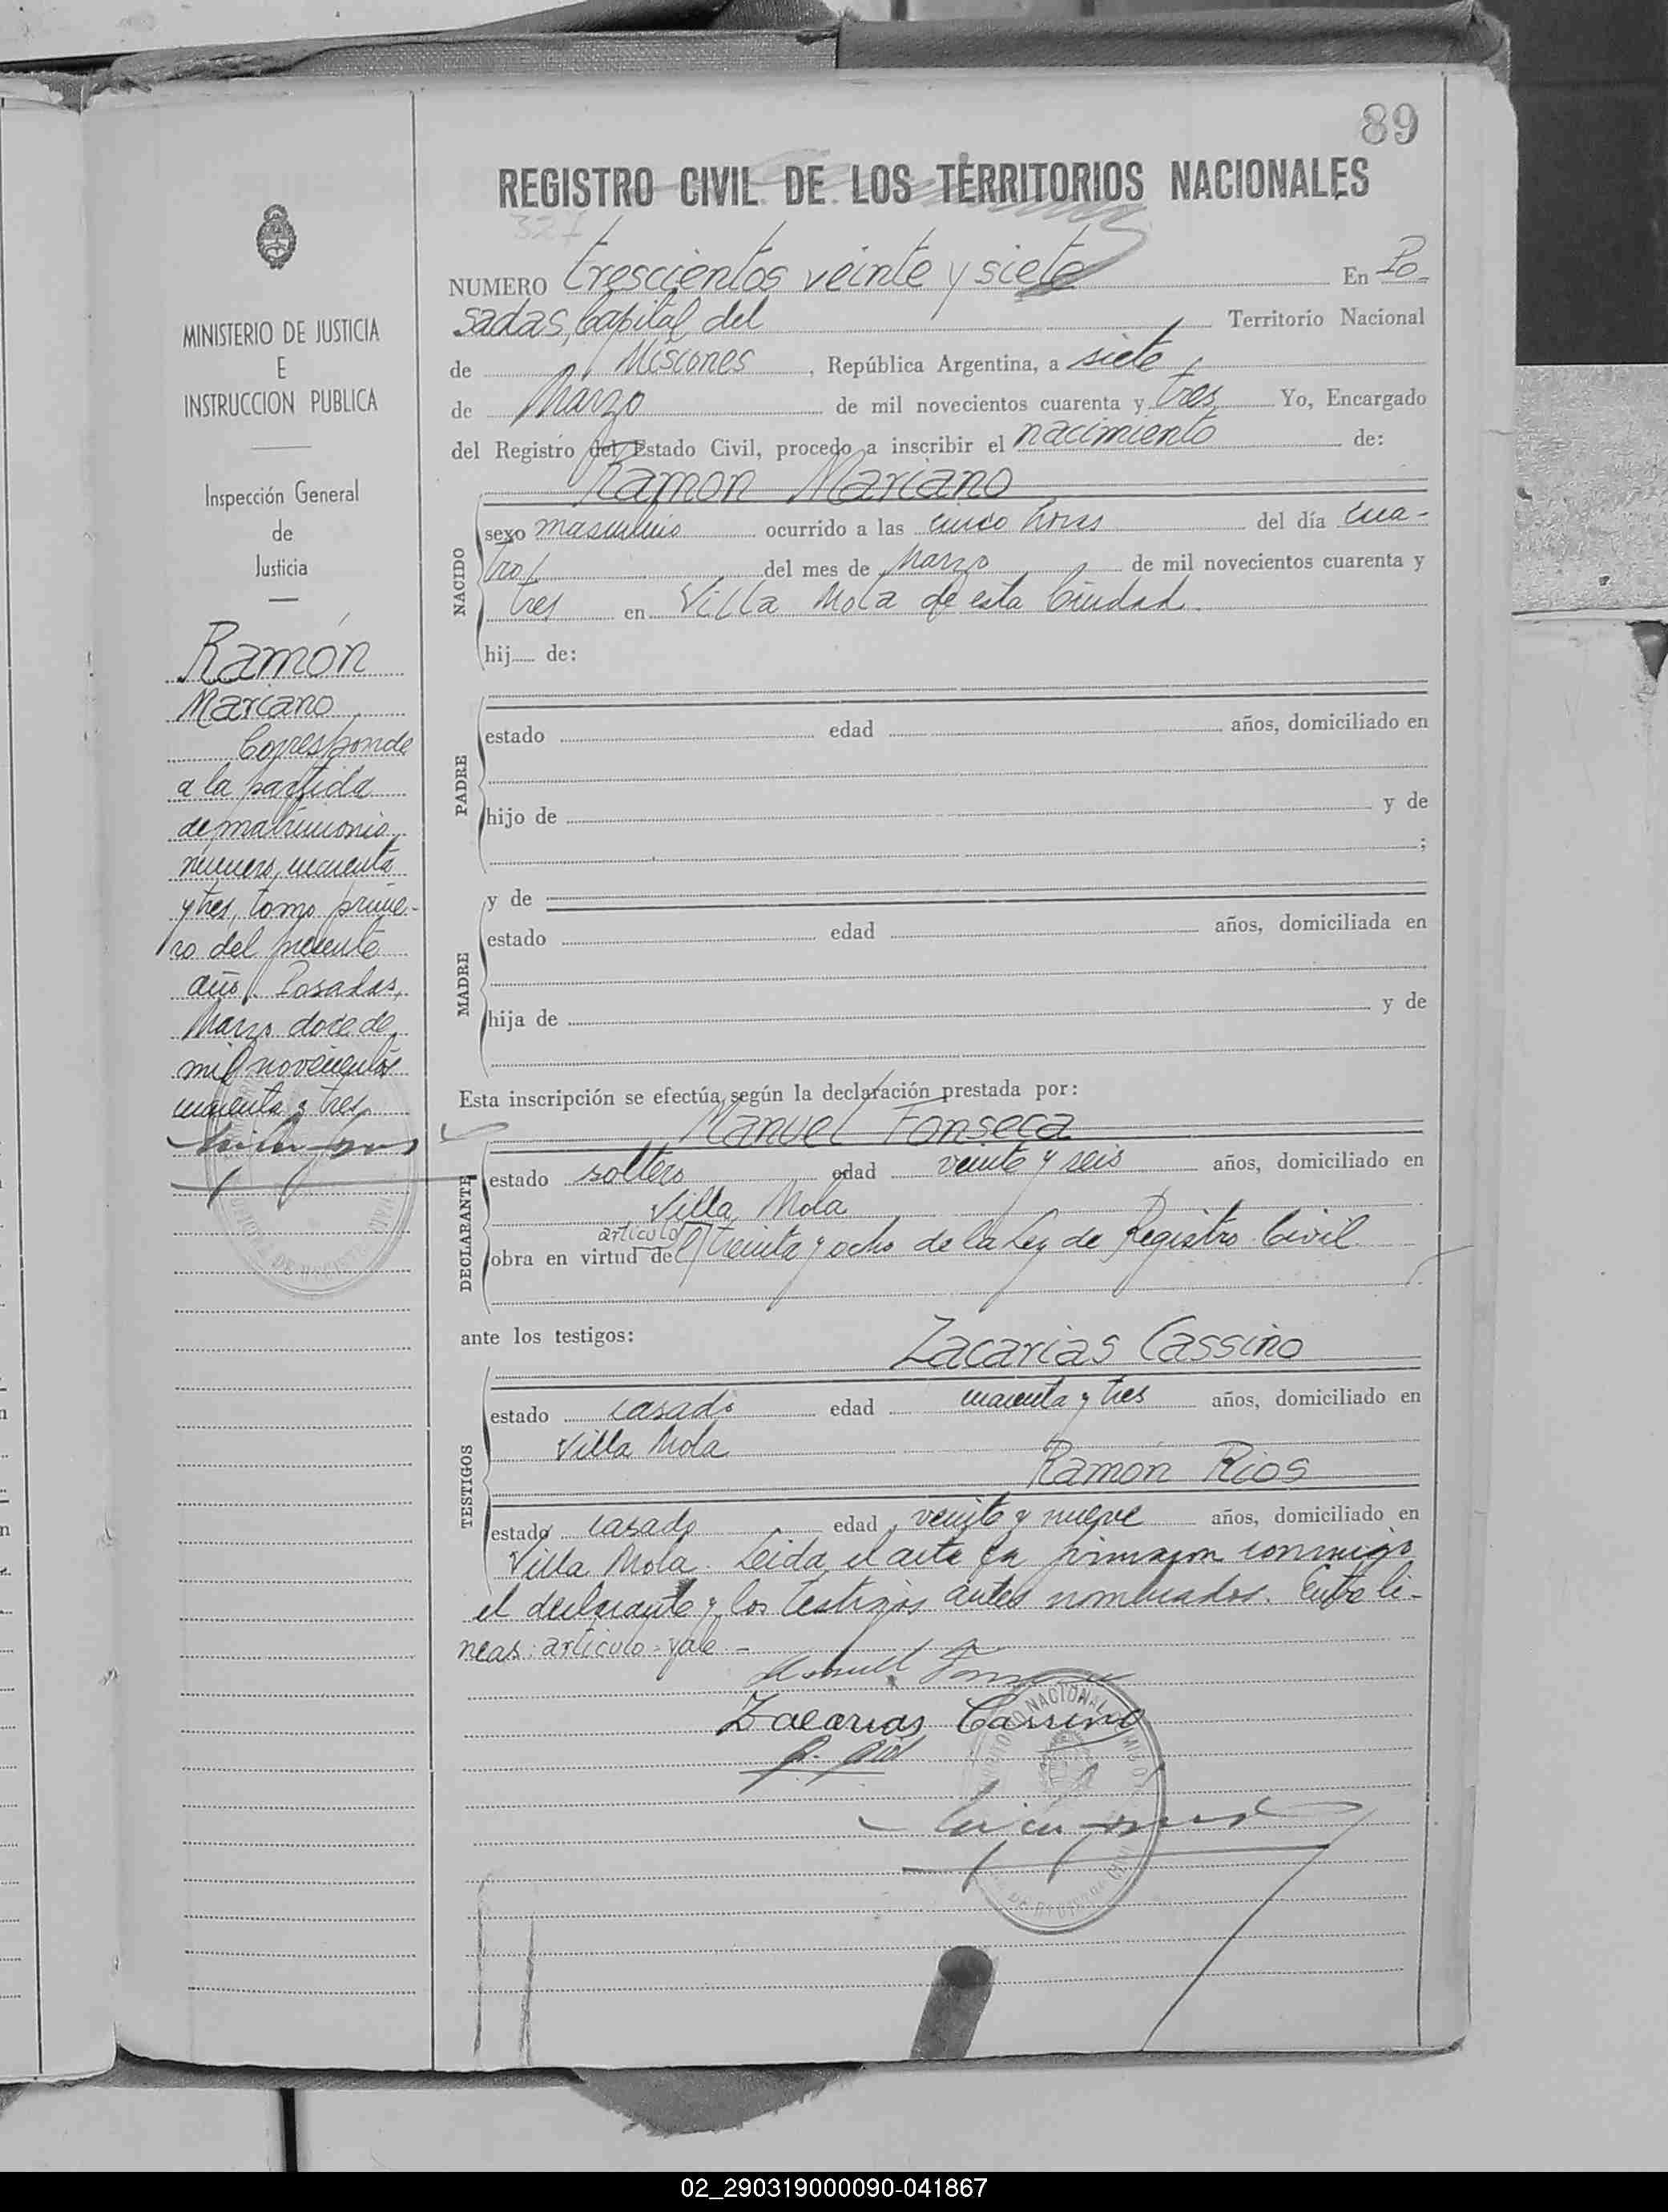 89
REGISTRO CIVIL DE LOS TERRITORIOS NACIONALES
327
NUMERO trescientos veinte y siete En Po-
sadas, Capital del Territorio Nacional
de Misiones, República Argentina, a siete
de Marzo de mil novecientos cuarenta y tres Yo, Encargado
del Registro del Estado Civil, procedo a inscribir el nacimiento de:
Ramon Mariano
NACIDO
sexo masculino ocurrido a las cinco horas del día cua-
tro del mes de Marzo de mil novecientos cuarenta y
tres en Villa Mola de esta Ciudad.
hij de:
PADRE
estado edad años, domiciliado en
hijo de y de
;
MADRE
y de
estado edad años, domiciliada en
hija de y de
Esta inscripción se efectúa según la declaración prestada por:
Manuel Fonseca
DECLARANTE
estado soltero edad veinte y seis años, domiciliado en
Villa Mola
articulo
obra en virtud del treinta y ocho de la Ley de Registro Civil
ante los testigos:
Zacarias Cassino
TESTIGOS
estado casado edad cuarenta y tres años, domiciliado en
Villa Mola
Ramón Rios
estado casado edad veinte y nueve años, domiciliado en
Villa Mola. Leida el acta la firmaron conmigo
el declarante y los testigos antes nombrados. Entre li-
neas: articulo = vale -
Manuel Fonseca
Zacarias Cassino
R. Rios
MINISTERIO DE JUSTICIA
E
INSTRUCCION PUBLICA
Inspección General
de
Justicia
Ramón
Mariano
Corresponde
a la partida
de matrimonio
número cuarenta
y tres, tomo prime-
ro del presente
año. Posadas,
Marzo doce de
mil novecientos
cuarenta y tres
02_290319000090-041867